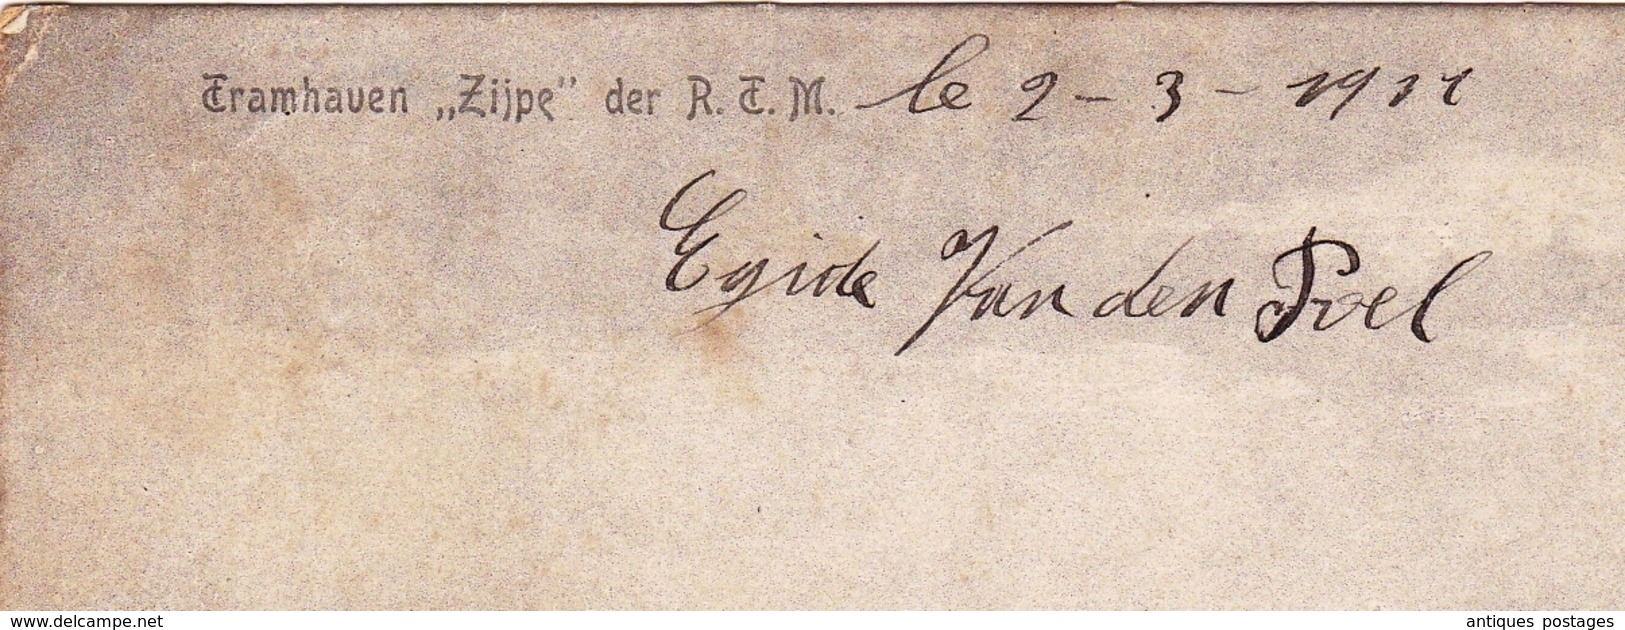 Tramhaven „Zijpe" der R. T. M. le 2 - 3 - 1911
Egide Van den Poel
delcampe.net
antiques postages